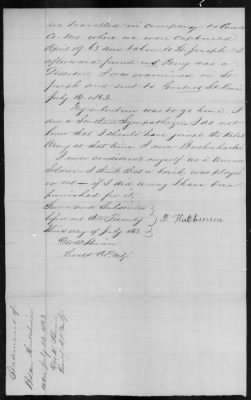 we travelled in company to
Co. Mo. where we were captured
April of 63 and taken to St Joseph. I
afterward found out Perry was a
Deserter. I was examined in St
Joseph and sent to Gratiot St Prison
July 1863.
My intention was to go home. I
am a Southern Sympathizer. I do not
know that I should have joined the Rebel
Army at that time. I never Bushwhacked
I never considered myself as a Union
Soldier. I think that a trick was played
on me - if I did wrong I have been
punished for it.
Sworn and Subscribed
before me this Twenty
Third day of July 1863
Hutchinson
Lieut
Statement of
July 23 1863